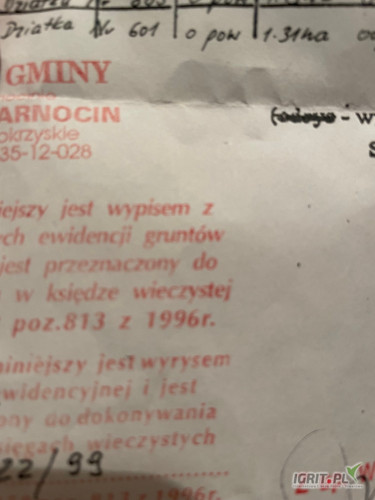 Działka Nr 601 o pow 1.31ha
GMINY
ARNOCIN
okrzyskie
35-12-028
- w
iejszy jest wypisem z
ych ewidencji gruntów
jest przeznaczony do
w księdze wieczystej
poz.813 z 1996r.
niniejszy jest wyrysem
widencyjnej i jest
ony do dokonywania
sięgach wieczystych
22/99
z 1996r.
IGRIT.PL